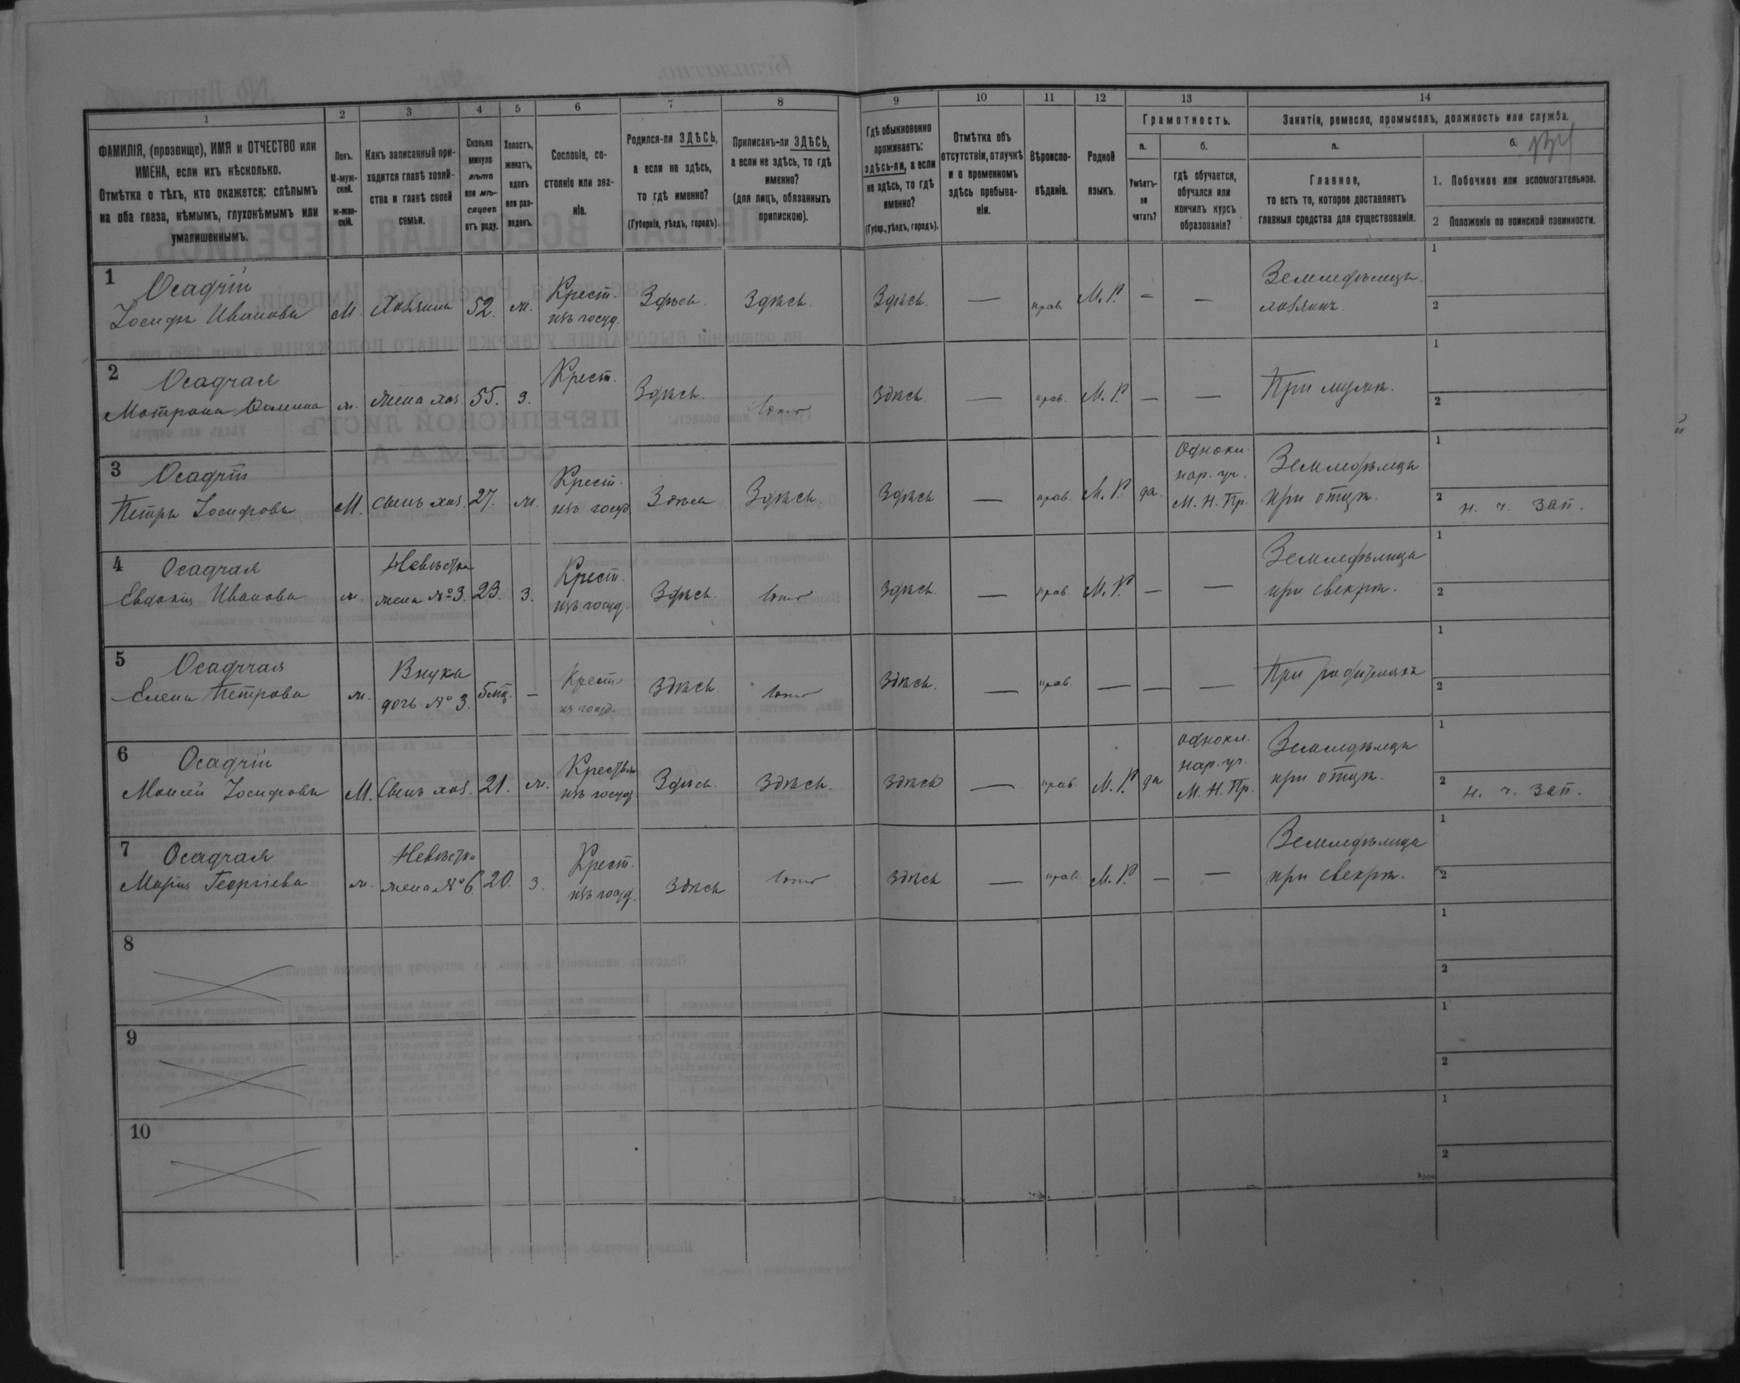 1 2 3 4 5 6 7 8 9 10 11 12 13 14
ФАМИЛІЯ, (прозвище), ИМЯ и ОТЧЕСТВО или
ИМЕНА, если ихъ нѣсколько.
Отмѣтка о тѣхъ, кто окажется: слѣпымъ
на оба глаза, нѣмымъ, глухонѣмымъ или
умалишеннымъ.
Полъ.
М-муж-
ской.
ж-жен-
скій.
Какъ записанный при-
ходится главѣ хозяй-
ства и главѣ своей
семьи.
Сколько
минуло
лѣтъ
или мѣ-
сяцевъ
отъ роду.
Холостъ,
женатъ,
вдовъ
или раз-
веденъ.
Сословіе, со-
стояніе или зва-
ніе.
Родился-ли ЗДѢСЬ,
а если не здѣсь,
то гдѣ именно?
(Губернія, уѣздъ, городъ).
Приписанъ-ли ЗДѢСЬ,
а если не здѣсь, то гдѣ
именно?
(для лицъ, обязанныхъ
припискою).
Гдѣ обыкновенно
проживаетъ:
здѣсь-ли, а если
не здѣсь, то гдѣ
именно?
(Губер., уѣздъ, городъ).
Отмѣтка объ
отсутствіи, отлучкѣ
и о временномъ
здѣсь пребыва-
ніи.
Вѣроиспо-
вѣданіе.
Родной
языкъ.
Грамотность.
а.
Умѣетъ-
ли
читать?
б.
гдѣ обучается,
обучался или
кончилъ курсъ
образованія?
Занятіе, ремесло, промыселъ, должность или служба.
а.
Главное,
то есть то, которое доставляетъ
главныя средства для существованія.
б.
1. Побочное или вспомогательное.
2 Положеніе по воинской повинности.
1 Осадчій
Іосифъ Ивановъ М. Хозяинъ 52. ж. Крест.
изъ госуд. Здѣсь. Здѣсь. Здѣсь. — прав. М. Р. — — Земледѣлецъ.
хозяинъ.
1
2
2 Осадчая
Мотрона ж. жена хоз 55. з. Крест. Здѣсь. Здѣсь. — прав. М. Р. — — При мужѣ.
1
2
3 Осадчій
Петръ Іосифовъ М. сынъ хоз. 27. ж. Крест.
изъ госуд Здѣсь Здѣсь. Здѣсь — прав. М. Р. да. Однокл.
нар. уч.
М. Н. Пр. Земледѣлецъ
при отцѣ.
1
2 н. ч. зап.
4 Осадчая
Евдокія Иванова ж. Невѣстка
жена № 3. 23. з. Крест.
изъ госуд. Здѣсь. Здѣсь. — прав. М. Р. — — Земледѣлица
при свекрѣ.
1
2
5 Осадчая
Елена Петрова ж. Внука
дочь № 3. — Крест
изъ госуд. Здѣсь. Здѣсь. — прав. — — — При родителяхъ
1
2
6 Осадчій
Моисей Іосифовъ М. Сынъ хоз. 21. ж. Крест
изъ госуд. Здѣсь. Здѣсь. Здѣсь — прав. М. Р. да однокл.
нар. уч.
М. Н. Пр. Земледѣлецъ
при отцѣ.
1
2 н. ч. зап.
7 Осадчая
Марія Георгіева ж. Невѣстка
жена № 6. 20. з. Крест.
изъ госуд. Здѣсь Здѣсь — прав. М. Р. — — Земледѣлица
при свекрѣ.
1
2
8
1
2
9
1
2
10
1
2